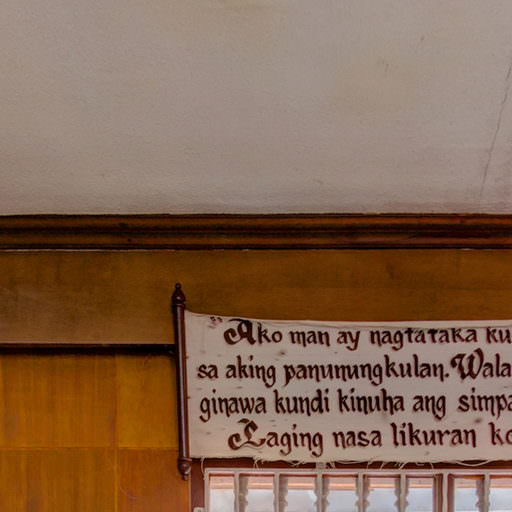 "Ako man ay nagtataka ku
sa aking panunungkulan. Wala
ginawa kundi kinuha ang simpa
Laging nasa likuran ko